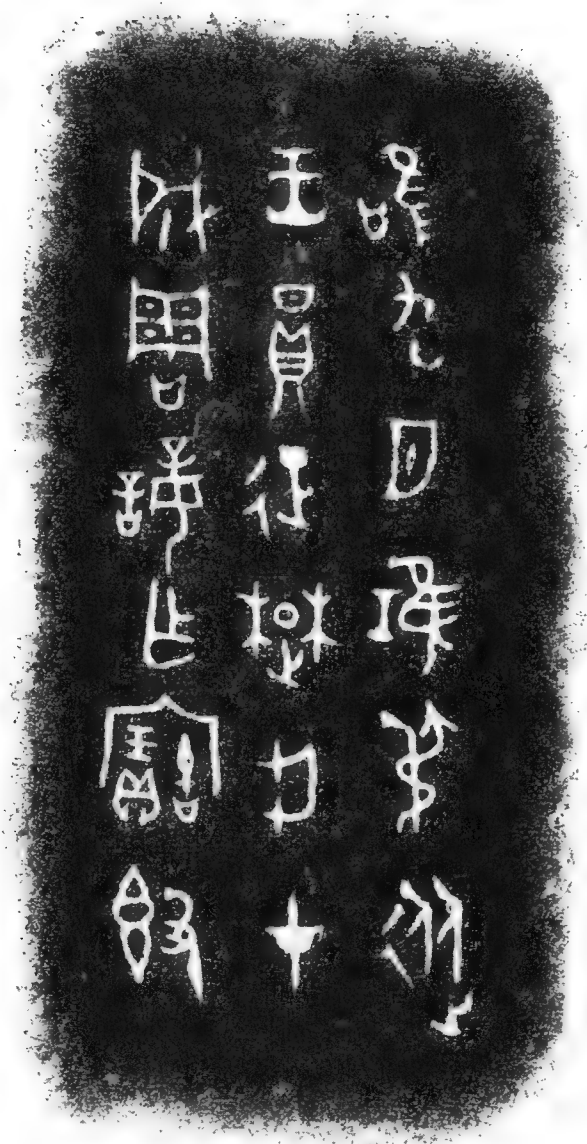 唯九月鴻叔從
王員征楚荊才
成周誨乍寶𣪘